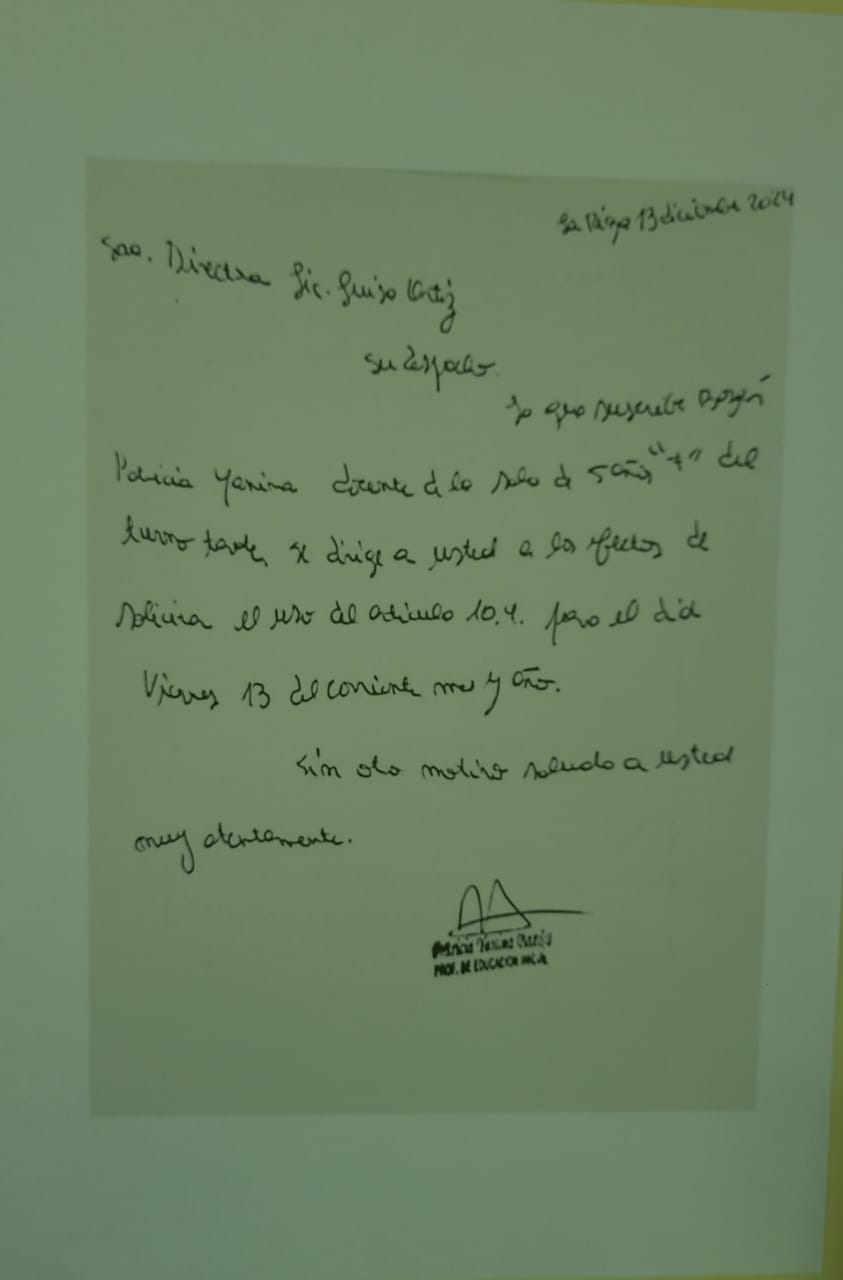 La Rioja 13 diciembre 2024
Sra. Directora Lic. Luisa Ortiz
Su despacho.
La que suscribe
Patricia Yanina docente de la sala de 5 años " " del
turno tarde, se dirige a usted a los efectos de
solicitar el uso del articulo 10.4. para el día
Viernes 13 del corriente mes y año.
Sin otro motivo saludo a usted
muy atentamente.
Patricia Yanina
PROF. DE EDUCACION INICIAL